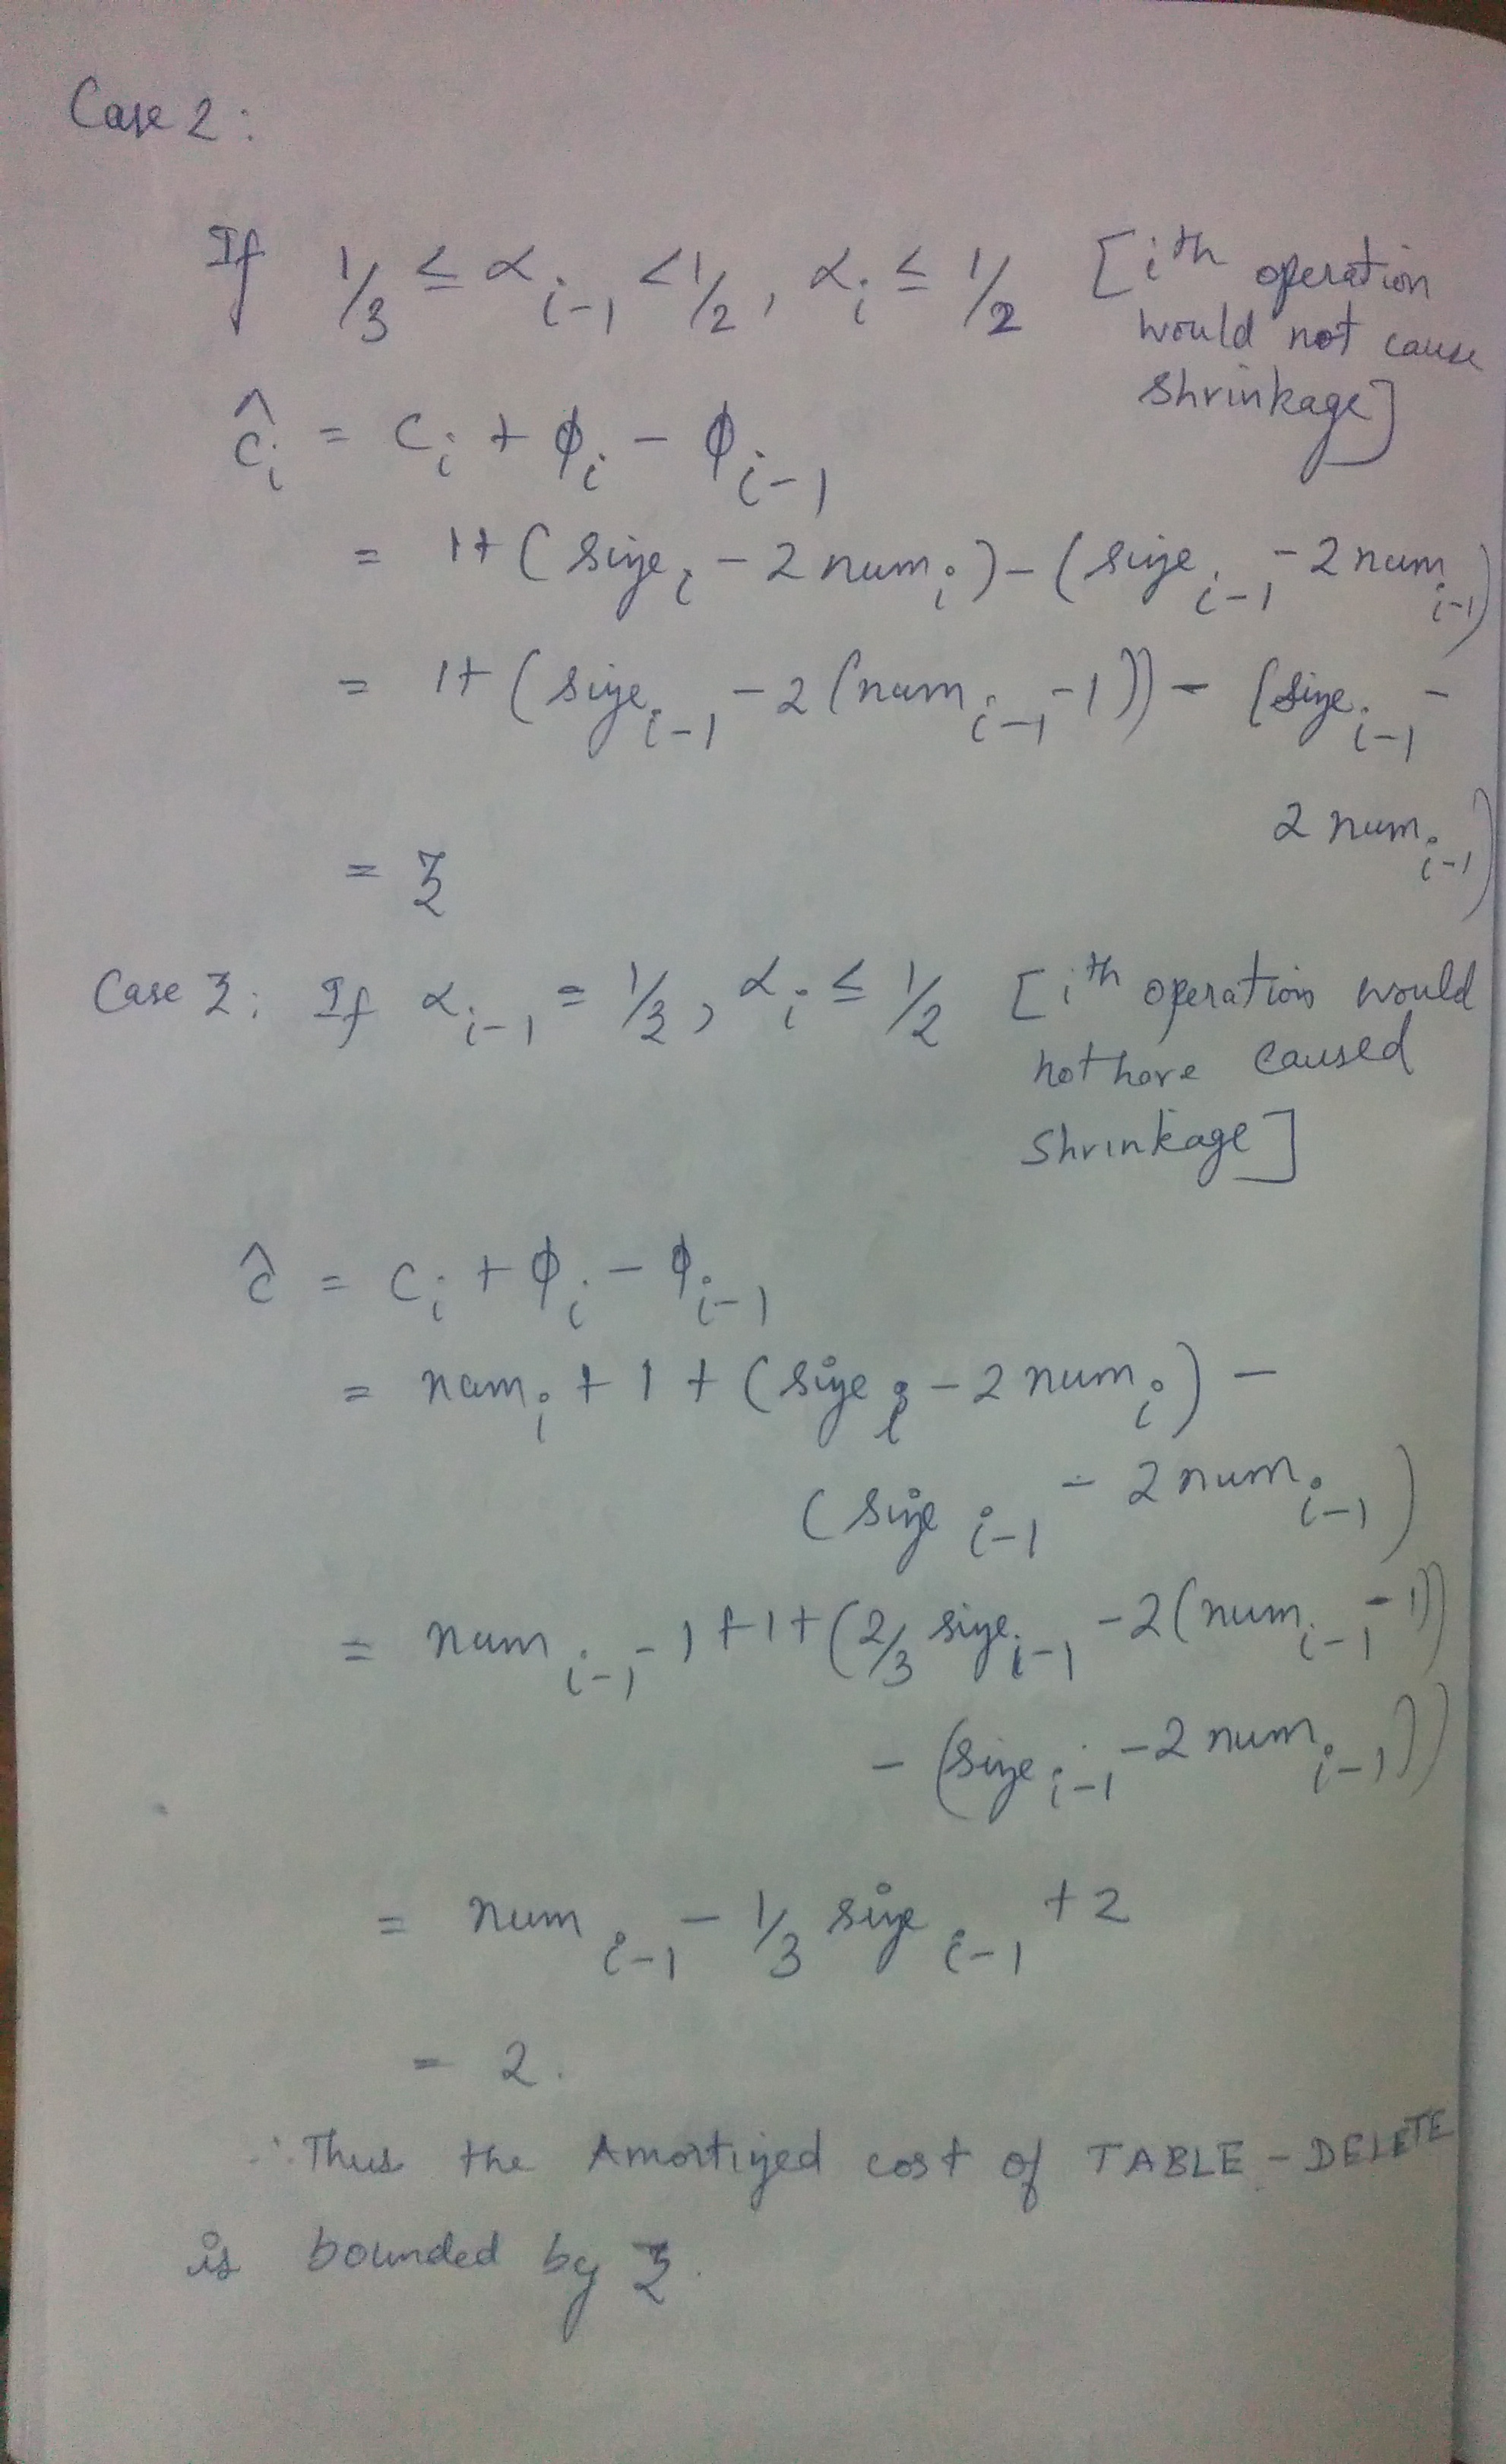 Case 2:
If 1/3 ≤ α_{i-1} < 1/2, α_i ≤ 1/2 [i^th operation
would not cause
shrinkage]
ĉ_i = c_i + ϕ_i - ϕ_{i-1}
= 1+ (size_i - 2 num_i) - (size_{i-1} - 2 num_{i-1})
= 1+ (size_{i-1} - 2 (num_{i-1} - 1)) - (size_{i-1} -
2 num_{i-1})
= 3
Case 3: If α_{i-1} = 1/3, α_i ≤ 1/2 [i^th operation would
not have caused
shrinkage]
ĉ = c_i + ϕ_i - ϕ_{i-1}
= num_i + 1 + (size_i - 2 num_i) -
(size_{i-1} - 2 num_{i-1})
= num_{i-1} - 1 + 1 + (2/3 size_{i-1} - 2 (num_{i-1} - 1))
- (size_{i-1} - 2 num_{i-1}))
= num_{i-1} - 1/3 size_{i-1} + 2
= 2.
∴ Thus the Amortized cost of TABLE-DELETE
is bounded by 3.